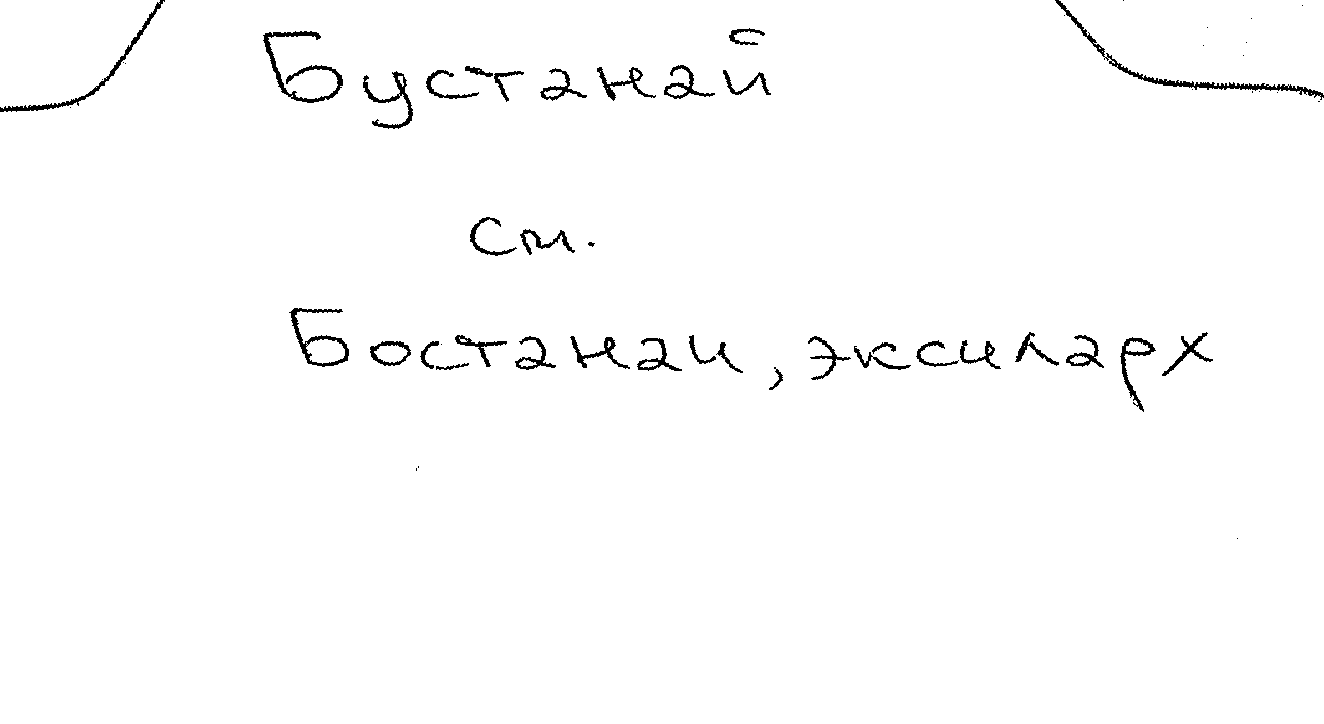 Бустанай
см.
Бостанаи, эксиларх